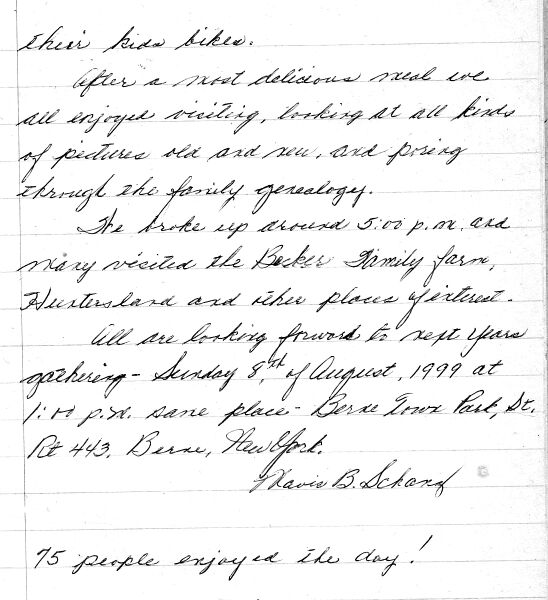 their kids bikes.
After a most delicious meal we
all enjoyed visiting, looking at all kinds
of pictures old and new, and poring
through the family genealogy.
We broke up around 5:00 p.m. and
many visited the Becker Family farm,
Huntersland and other places of interest.
All are looking forward to next years
gathering - Sunday 8,th of August, 1999 at
1:00 p.m. same place - Berne Town Park, St.
Rt 443, Berne, New York.
Mavis B. 
75 people enjoyed the day!